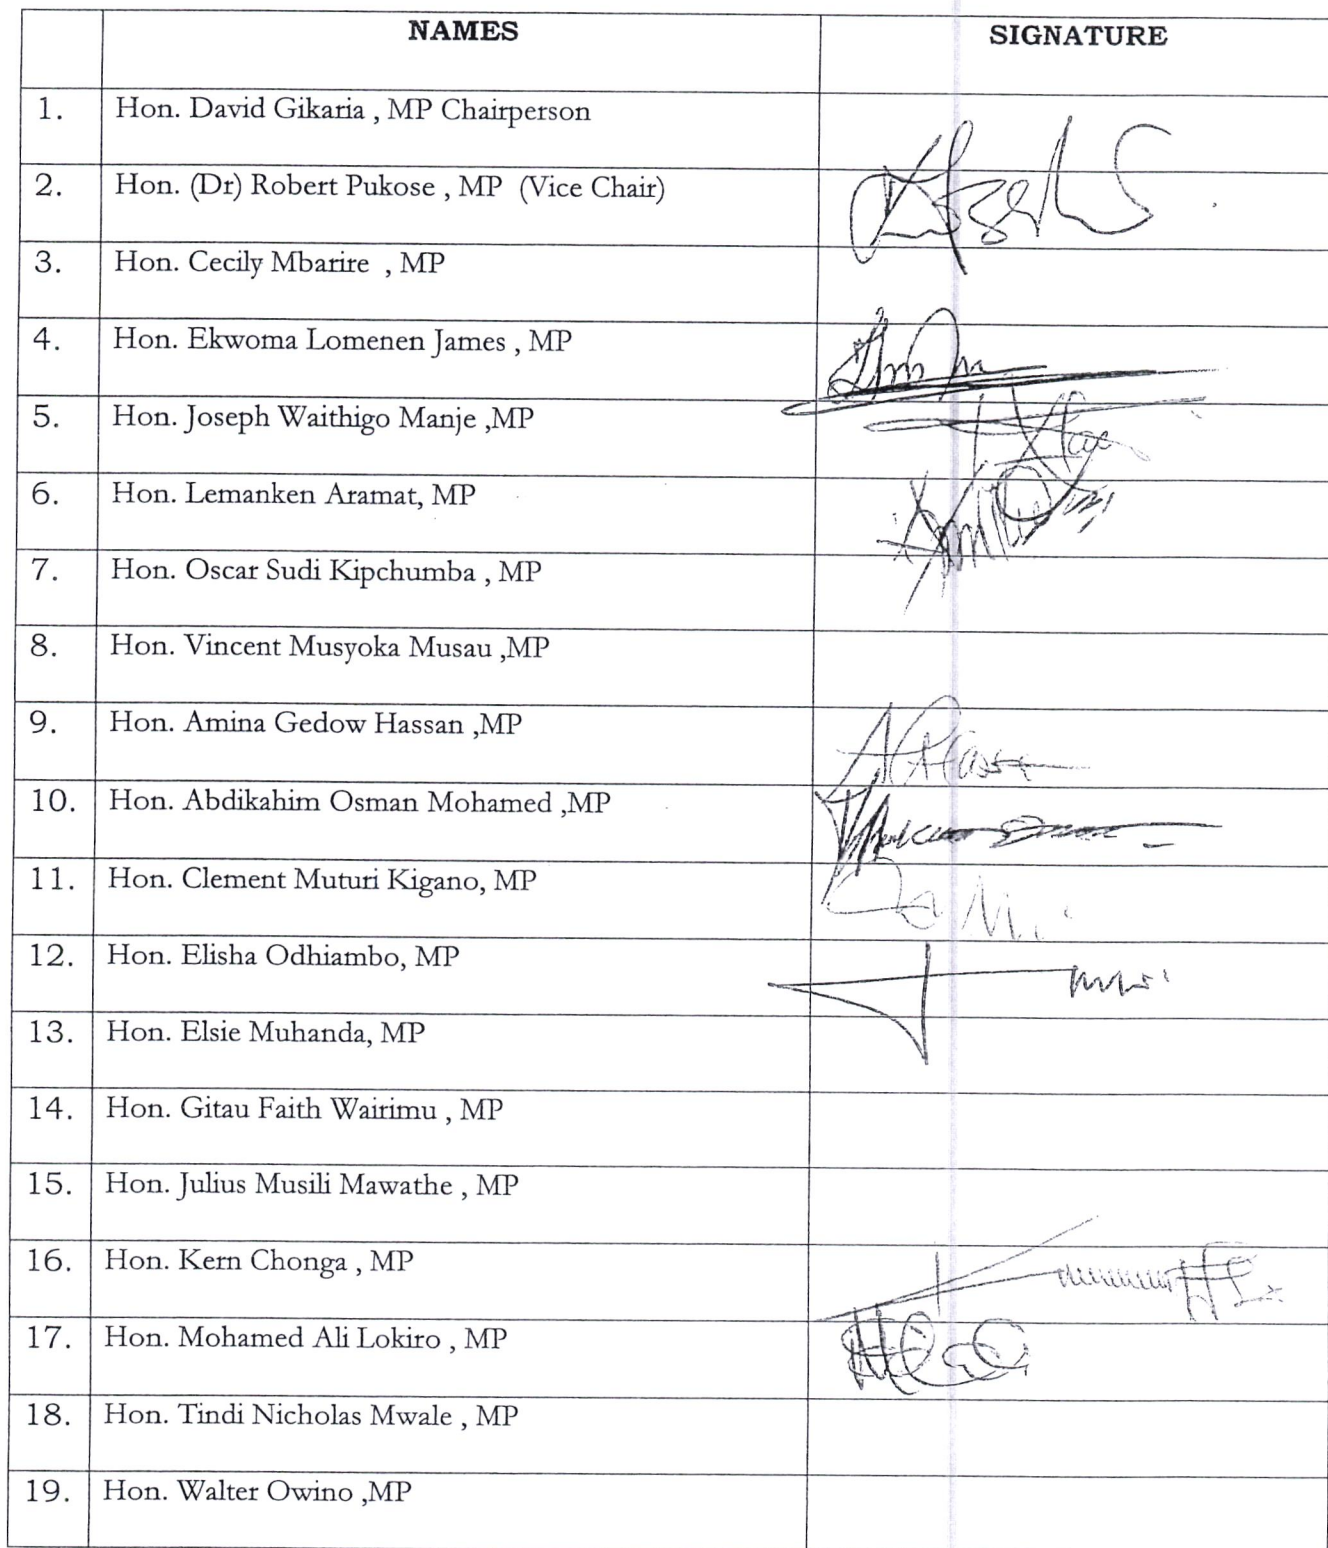 NAMES SIGNATURE
1. Hon. David Gikaria , MP Chairperson
2. Hon. (Dr) Robert Pukose , MP (Vice Chair)
3. Hon. Cecily Mbarire , MP
4. Hon. Ekwoma Lomenen James , MP
5. Hon. Joseph Waithigo Manje ,MP
6. Hon. Lemanken Aramat, MP
7. Hon. Oscar Sudi Kipchumba , MP
8. Hon. Vincent Musyoka Musau ,MP
9. Hon. Amina Gedow Hassan ,MP
10. Hon. Abdikahim Osman Mohamed ,MP
11. Hon. Clement Muturi Kigano, MP
12. Hon. Elisha Odhiambo, MP
13. Hon. Elsie Muhanda, MP
14. Hon. Gitau Faith Wairimu , MP
15. Hon. Julius Musili Mawathe , MP
16. Hon. Kern Chonga , MP
17. Hon. Mohamed Ali Lokiro , MP
18. Hon. Tindi Nicholas Mwale , MP
19. Hon. Walter Owino ,MP